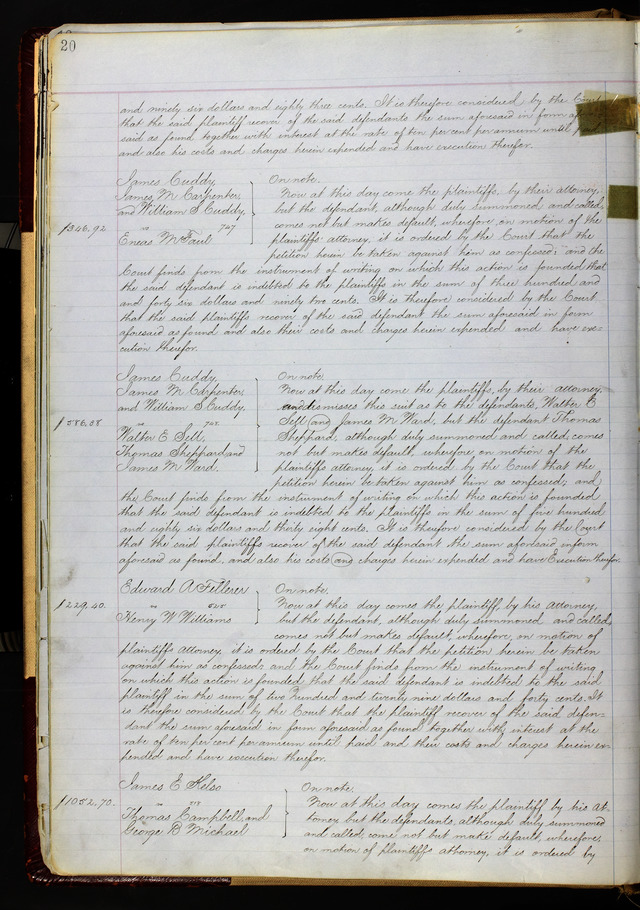 20
and ninety six dollars and eighty three cents. It is therefore considered by the Court
that the said plaintiff recover of the said defendants the sum aforesaid in form afore
said as found together with interest at the rate of ten per cent per annum until paid
and also his costs and charges herein expended and have execution therefor.
James Cuddy,
James M Carpenter,
and William S Cuddy,
vs 727
Eneas McFaul
$346.92
On note.
Now at this day come the plaintiffs, by their attorney,
but the defendant, although duly summoned and called,
comes not but makes default, wherefore, on motion of the
plaintiffs attorney, it is ordered by the Court that the
petition herein be taken against him as confessed; and the
Court finds from the instrument of writing on which this action is founded that
the said defendant is indebted to the plaintiffs in the sum of three hundred and
and forty six dollars and ninety two cents. It is therefore considered by the Court
that the said plaintiffs recover of the said defendant the sum aforesaid in form
aforesaid as found and also their costs and charges herein expended and have exe-
cution therefor.
James Cuddy,
James M Carpenter,
and William S Cuddy,
vs 728
Walter E Sell,
Thomas Sheppard and
James M Ward.
$586.38
On note.
Now at this day come the plaintiffs, by their attorney,
and dismisses this suit as to the defendants, Walter E
Sell and James M Ward, but the defendant Thomas
Sheppard, although duly summoned and called, comes
not but makes default, wherefore, on motion of the
plaintiffs attorney, it is ordered by the Court that the
petition herein be taken against him as confessed; and
the Court finds from the instrument of writing on which this action is founded
that the said defendant is indebted to the plaintiffs in the sum of five hundred
and eighty six dollars and thirty eight cents. It is therefore considered by the Court
that the said plaintiffs recover of the said defendant the sum aforesaid in form
aforesaid as found, and also his costs and charges herein expended and have Execution therefor.
Edward A Fillerer
vs 525
Henry W Williams
$229.40.
On note.
Now at this day comes the plaintiff, by his attorney,
but the defendant, although duly summoned and called,
comes not but makes default, wherefore, on motion of
plaintiffs attorney, it is ordered by the Court that the petition herein be taken
against him as confessed; and the Court finds from the instrument of writing
on which this action is founded that the said defendant is indebted to the said
plaintiff in the sum of two hundred and twenty nine dollars and forty cents. It
is therefore considered by the Court that the plaintiff recover of the said defen-
dant the sum aforesaid in form aforesaid as found together with interest at the
rate of ten per cent per annum until paid and their costs and charges herein ex-
pended and have execution therefor.
James E Kelso
vs
Thomas Campbell, and
George B Michael
$1052.70.
On note.
Now at this day comes the plaintiff by his at-
torney but the defendants, although duly summoned
and called, come not but make default, wherefore,
on motion of plaintiffs attorney, it is ordered by